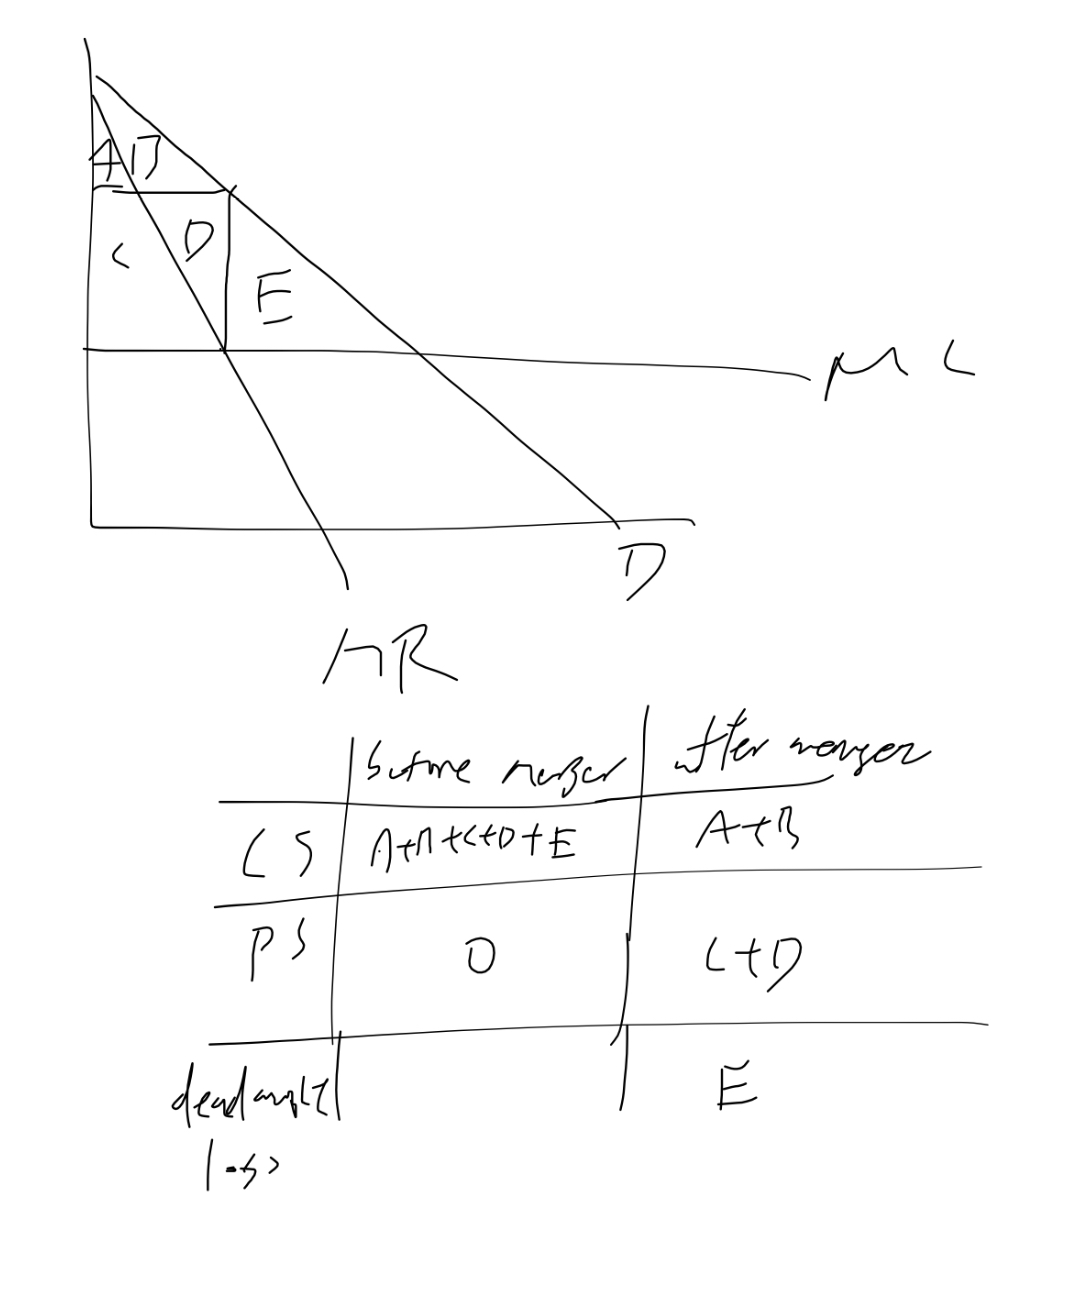 A B
C D
E
MC
D
MR
before merger after merger
CS A+B+C+D+E A+B
PS 0 C+D
deadweight E
loss